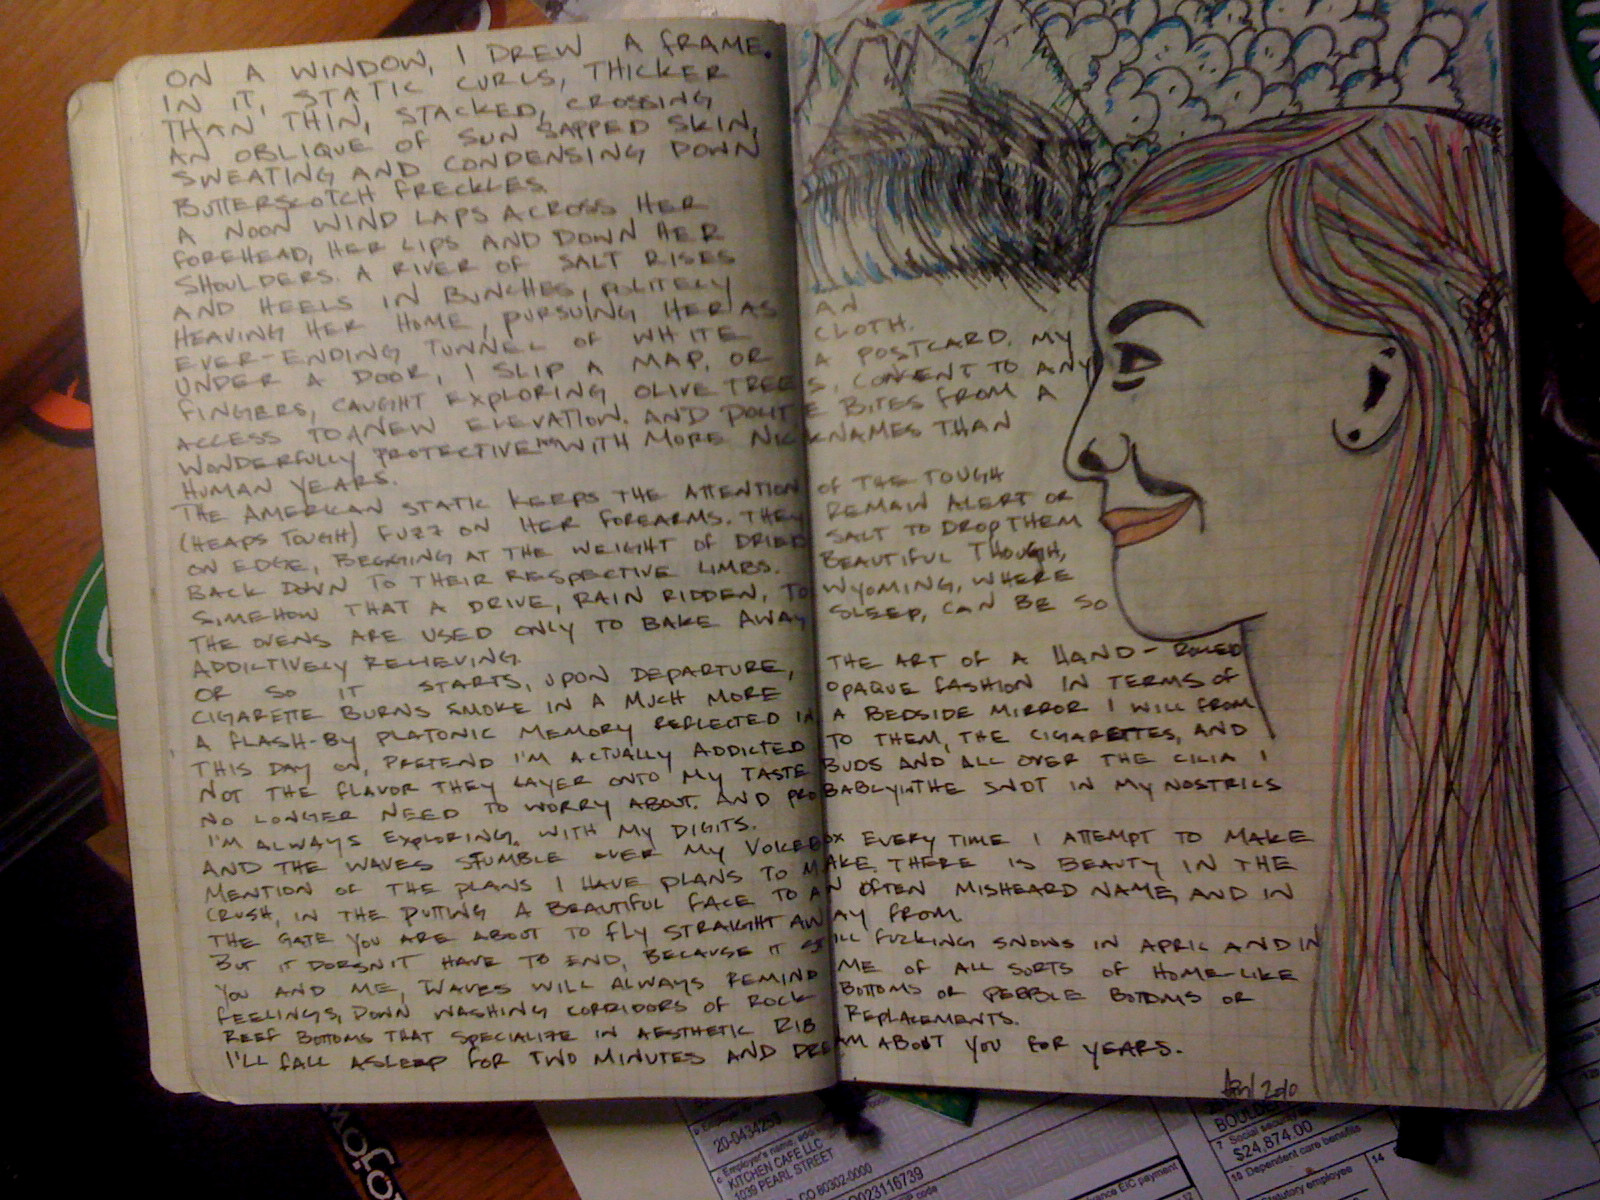 ON A WINDOW, I DREW A FRAME.
IN IT, STATIC CURLS, THICKER
THAN THIN, STACKED, CROSSING
AN OBLIQUE OF SUN SAPPED SKIN,
SWEATING AND CONDENSING DOWN
BUTTERSCOTCH FRECKLES.
A NOON WIND LAPS ACROSS HER
FOREHEAD, HER LIPS AND DOWN HER
SHOULDERS. A RIVER OF SALT RISES
AND HEELS IN BUNCHES, POLITELY
HEAVING HER HOME, PURSUING HER AS AN
EVER-ENDING TUNNEL OF WHITE CLOTH.
UNDER A DOOR, I SLIP A MAP, OR A POSTCARD. MY
FINGERS, CAUGHT EXPLORING OLIVE TREES, CONSENT TO ANY
ACCESS TO A NEW ELEVATION. AND POLITE BITES FROM A
WONDERFULLY PROTECTIVE WITH MORE NICKNAMES THAN
HUMAN YEARS.
THE AMERICAN STATIC KEEPS THE ATTENTION OF THE TOUGH
(HEAPS TOUGH) FUZZ ON HER FOREARMS. THEY REMAIN ALERT OR
ON EDGE, BEGGING AT THE WEIGHT OF DRIED SALT TO DROP THEM
BACK DOWN TO THEIR RESPECTIVE LIMBS. BEAUTIFUL THOUGH,
SOMEHOW THAT A DRIVE, RAIN RIDDEN, TO WYOMING, WHERE
THE OVENS ARE USED ONLY TO BAKE AWAY SLEEP, CAN BE SO
ADDICTIVELY RELIEVING.
OR SO IT STARTS, UPON DEPARTURE, THE ART OF A HAND-ROLLED
CIGARETTE BURNS SMOKE IN A MUCH MORE OPAQUE FASHION IN TERMS OF
A FLASH-BY PLATONIC MEMORY REFLECTED IN A BEDSIDE MIRROR I WILL FROM
THIS DAY ON, PRETEND I'M ACTUALLY ADDICTED TO THEM, THE CIGARETTES, AND
NOT THE FLAVOR THEY LAYER ONTO MY TASTE BUDS AND ALL OVER THE CILIA I
NO LONGER NEED TO WORRY ABOUT. AND PROBABLY IN THE SNOT IN MY NOSTRILS
I'M ALWAYS EXPLORING. WITH MY DIGITS.
AND THE WAVES STUMBLE OVER MY VOICEBOX EVERY TIME I ATTEMPT TO MAKE
MENTION OF THE PLANS I HAVE PLANS TO MAKE. THERE IS BEAUTY IN THE
CRUSH, IN THE PUTTING A BEAUTIFUL FACE TO AN OFTEN MISHEARD NAME, AND IN
THE GATE YOU ARE ABOUT TO FLY STRAIGHT AWAY FROM.
BUT IT DOESN'T HAVE TO END, BECAUSE IT STILL FUCKING SNOWS IN APRIL AND IN
YOU AND ME, WAVES WILL ALWAYS REMIND ME OF ALL SORTS OF HOME-LIKE
FEELINGS, DOWN WASHING CORRIDORS OF ROCK BOTTOMS OR PEBBLE BOTTOMS OR
REEF BOTTOMS THAT SPECIALIZE IN AESTHETIC RIB REPLACEMENTS.
I'LL FALL ASLEEP FOR TWO MINUTES AND DREAM ABOUT YOU FOR YEARS.
2010
20-0434258
Employer's name,
KITCHEN CAFE LLC
1039 PEARL STREET
CO 80302-0000
0023116739
EIC payment
7 Social security
$24,874.00
10 Dependent care benefits
14
Statutory employee